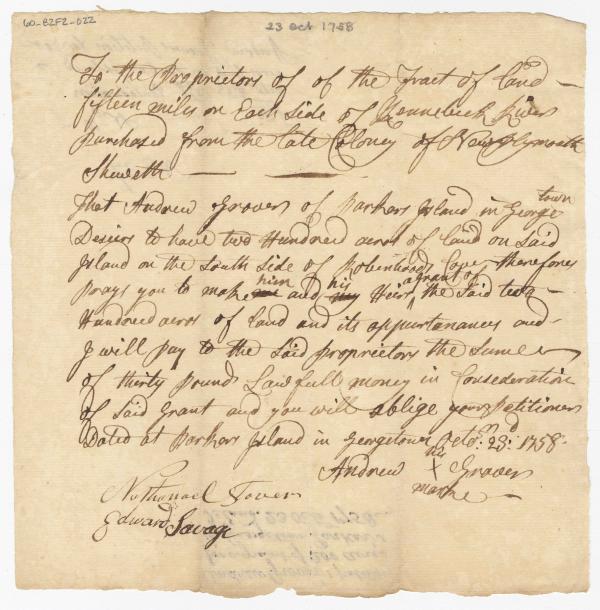 60-82F2-022
23 oct 1758
To the Proprietors of of the Tract of land —
fifteen miles on Each side of Kennebeck River
purchased from the late Colony of New plymouth
Sheweth — —
That Andrew Grover of Parkers Island in George town
Desiers to have two Hundred acres of land on said
Island on the South side of Robinhoods Cove, therefores
prays you to make me him and my his Heirs a grant of the said two
Hundred acres of land and its appurtanances and
I will pay to the said proprietors the sume
of thirty pounds Lawfull money in Consederation
of said Grant and you will oblige your petitioner
Dated at parkers Island in Georgetown Octor. 23d: 1758-
Andrew his X Grover
marke
Nathanael
Edward Savage